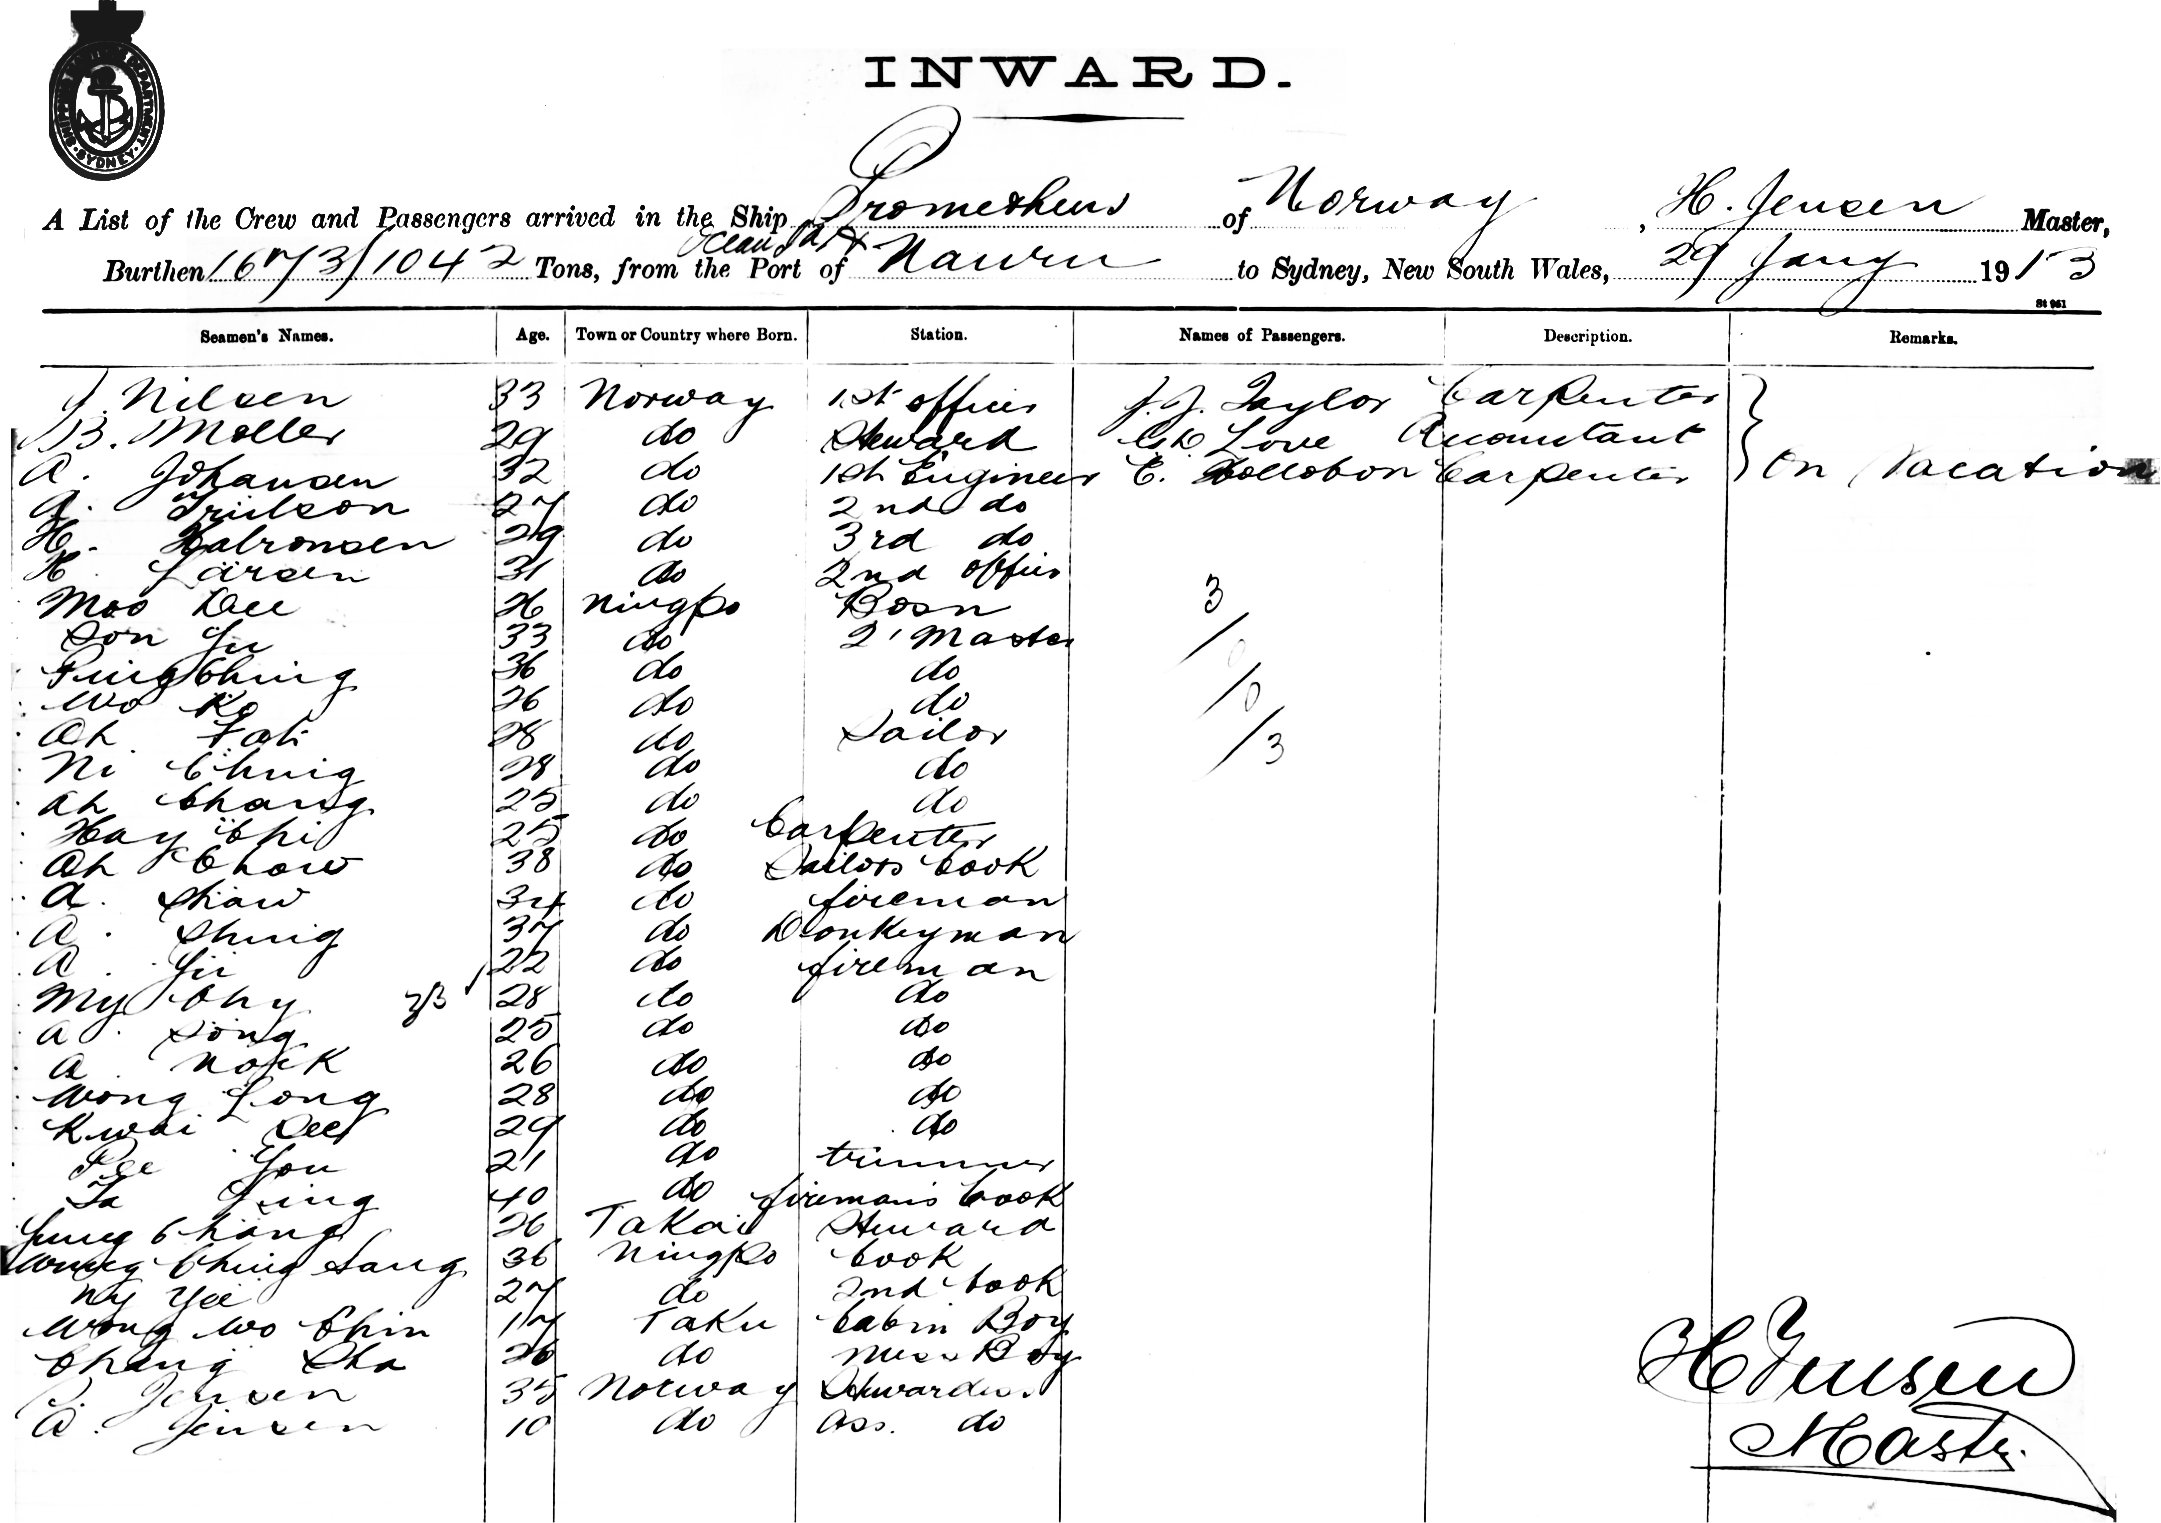 SHIPPING DEPARTMENT SYDNEY
INWARD.
A List of the Crew and Passengers arrived in the Ship Prometheus of Norway, H. Jensen Master,
Burthen 1673/1042 Tons, from the Port of Ocean Isld & Nauru to Sydney, New South Wales, 29 Jany 1913
St 951
Seamen's Names. Age. Town or Country where Born. Station. Names of Passengers. Description. Remarks.
J. Nilsen 33 Norway 1st officer J. J. Taylor Carpenter
B. Moller 29 do Steward Love Accountant
A. Johansen 32 do 1st Engineer E. Hollobon Carpenter On Vacation
27 do 2nd do
H. 29 do 3rd do
H. Larsen 31 do 2nd officer
Moo Dee 26 Ningpo Bosn 3
Son Yu 33 do 2' Master /
Ching 36 do do 0
Wo Ko 26 do do /0
Ah Fat 28 do Sailor /3
Ni Ching 28 do do
Ah Chang 25 do do
Hay Chi 25 do Carpenter
Ah Chow 38 do Sailors Cook
A. Shaw 34 do fireman
A. Shing 37 do Donkeyman
A. 22 do fireman
My Chy 28 do do
A. Song 25 do do
A. Nock 26 do do
Wong Long 28 do do
Kwai Dee 29 do do
Pee You 21 do trimmer
Ta Ling 40 do fireman's Cook
Chang 26 Takai Steward
Ching Sang 36 Ningpo Cook
Ny Yee 27 do 2nd Cook
Wong Wo Chin 17 Taku Cabin Boy
Chang Sha 26 do Mess Boy
Jensen 35 Norway Stewardess
A. Jensen 10 do Ass. do
H Jensen
Master.